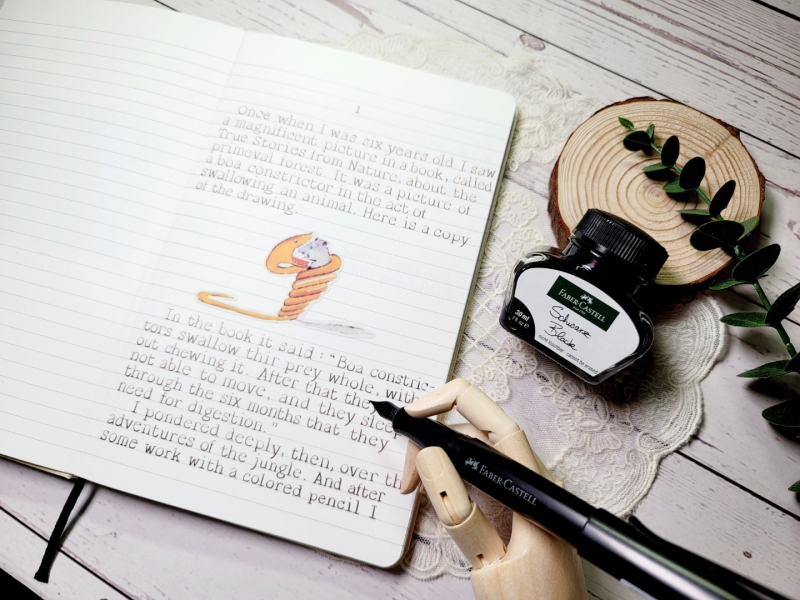 1
Once when I was six years old I saw
a magnificent picture in a book, called
True Stories from Nature, about the
primeval forest. It was a picture of
a boa constrictor in the act of
swallowing an animal. Here is a copy
of the drawing.
In the book it said : "Boa constric-
tors swallow their prey whole, with
out chewing it. After that they
not able to move, and they slee
through the six months that they
need for digestion."
I pondered deeply, then, over th
adventures of the jungle. And after
some work with a colored pencil I
FABER-CASTELL
30 ml
Schwarz
Black
FABER-CASTELL